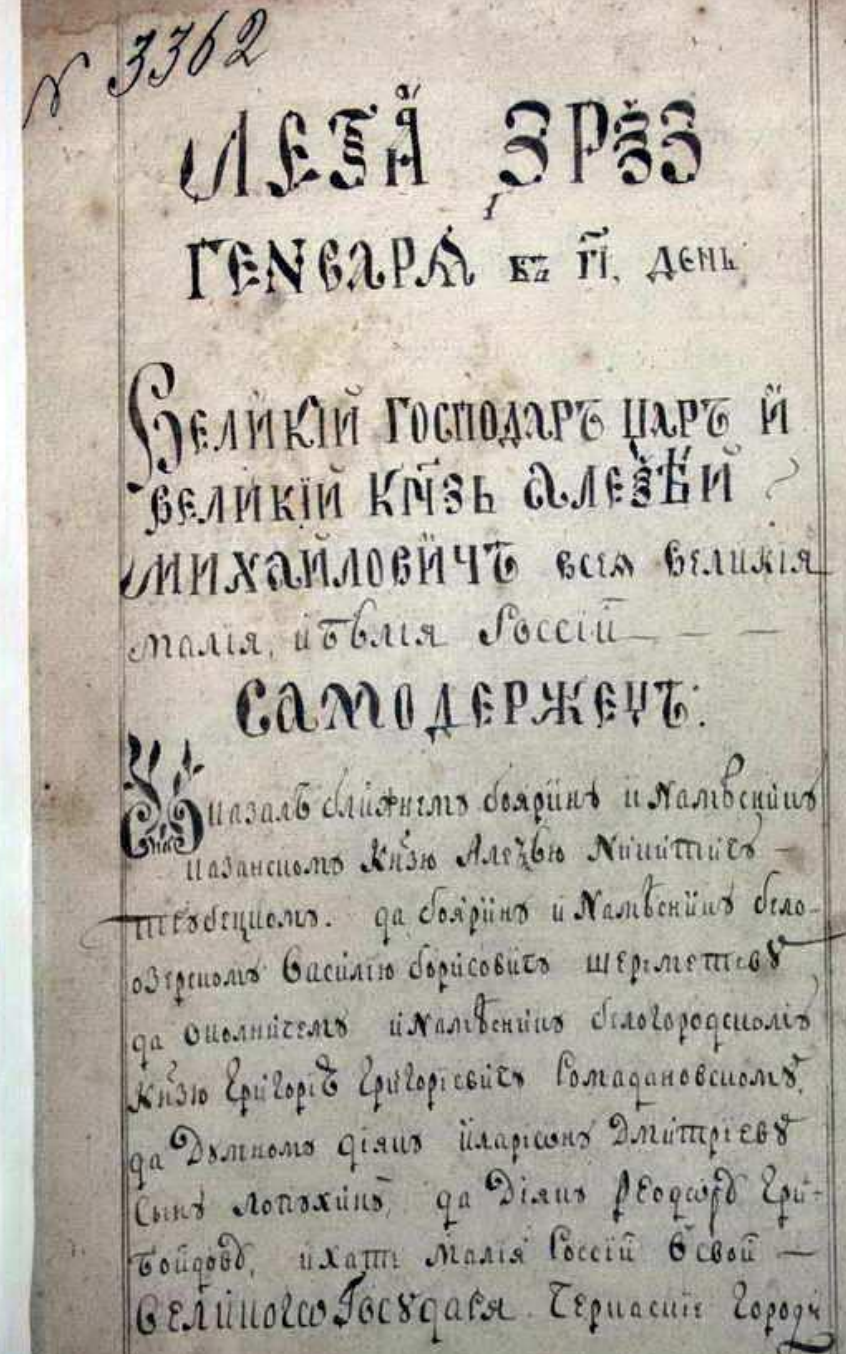 № 3362
ЛЕТА ЗРѮЗ
ГЕНВАРЯ въ г҃і, день
Великій Господаръ Царъ и
великій Кн҃зь Алеѯѣй
Михайловичъ всея великія
малія, и бѣлія Россіи
Самодержецъ:
Указалъ ближнемꙋ боярину и Намѣснику
казанскому Кн҃зю Алеѯѣю Никитичу
трубецкому. да боярину и Намѣснику бело-
озерскому Василію борисовичу шереметеву
да околничему и Намѣснику белогородскому
Кн҃зю Григорію Григоріевичу Ромадановскому,
да Думному діяку иларіону Дмитріеву
Сыну лопухину, да Діяку Ѳеодору Гри-
боидову, ихати Малія Россіи в свои
великого Государя Черкаскіе Городи